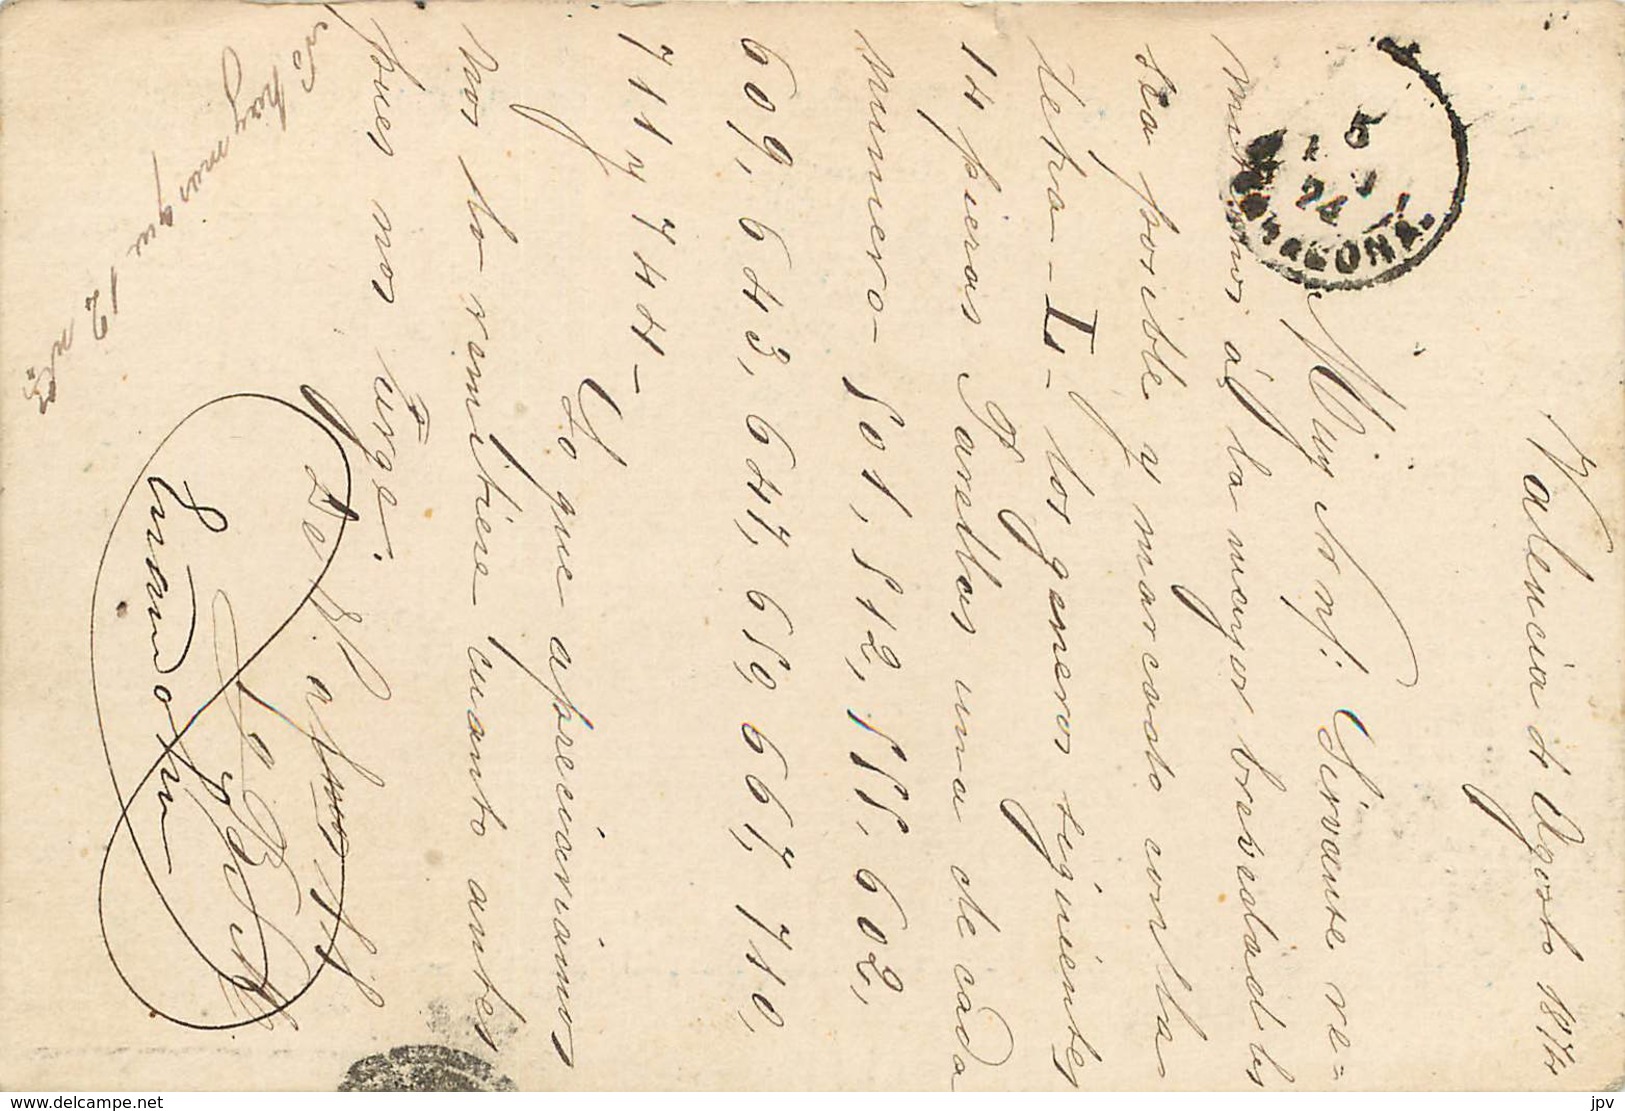 Valencia 4 Agosto 1874
Muy Srs nrs: Sirvanse re-
mitirnos á la mayor brevedad les
sea posible y marcado con las
letra - Ls - los generos siguientes
14 piezas Tarettas una de cada
numero - 501, 512, 555, 602,
609, 643, 647, 659, 667, 710,
711 y 744 -
Lo que apreciariamos
nos lo remitiese cuanto antes
pues nos úrge.
De V. afmos SS
no hay mas que 12 nºs
5
74
ONA
www.delcampe.net
jpv